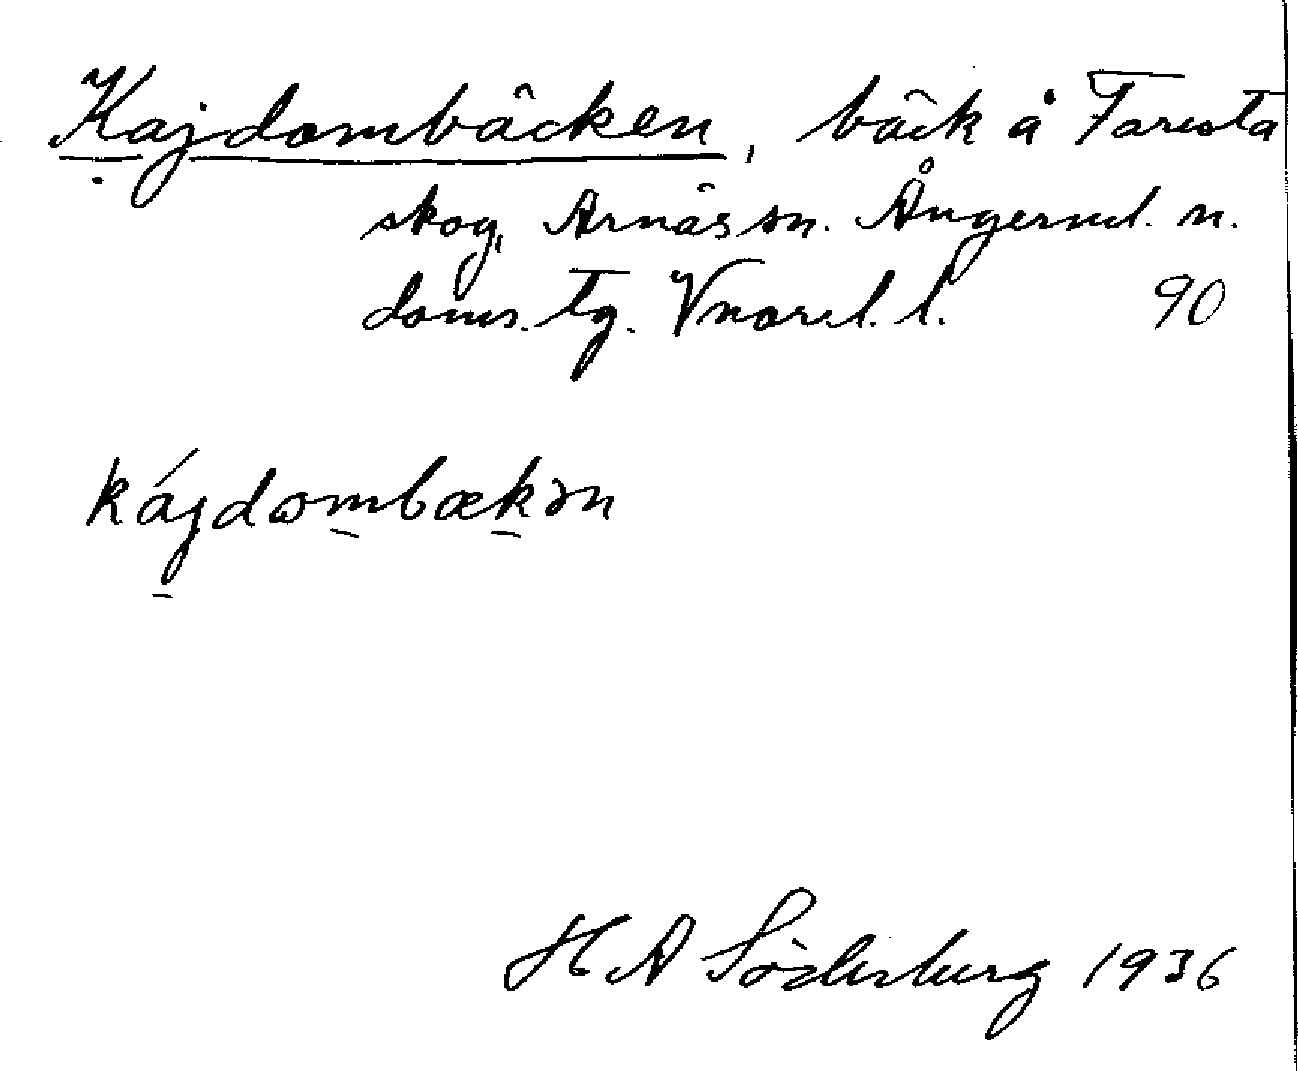 Kajdombäcken, bäck å Faresta
skog, Arnäs sn. Ångerml. n.
doms. tg. Vnorrl. l. 90
kájdωmbækən
H A Söderberg 1936